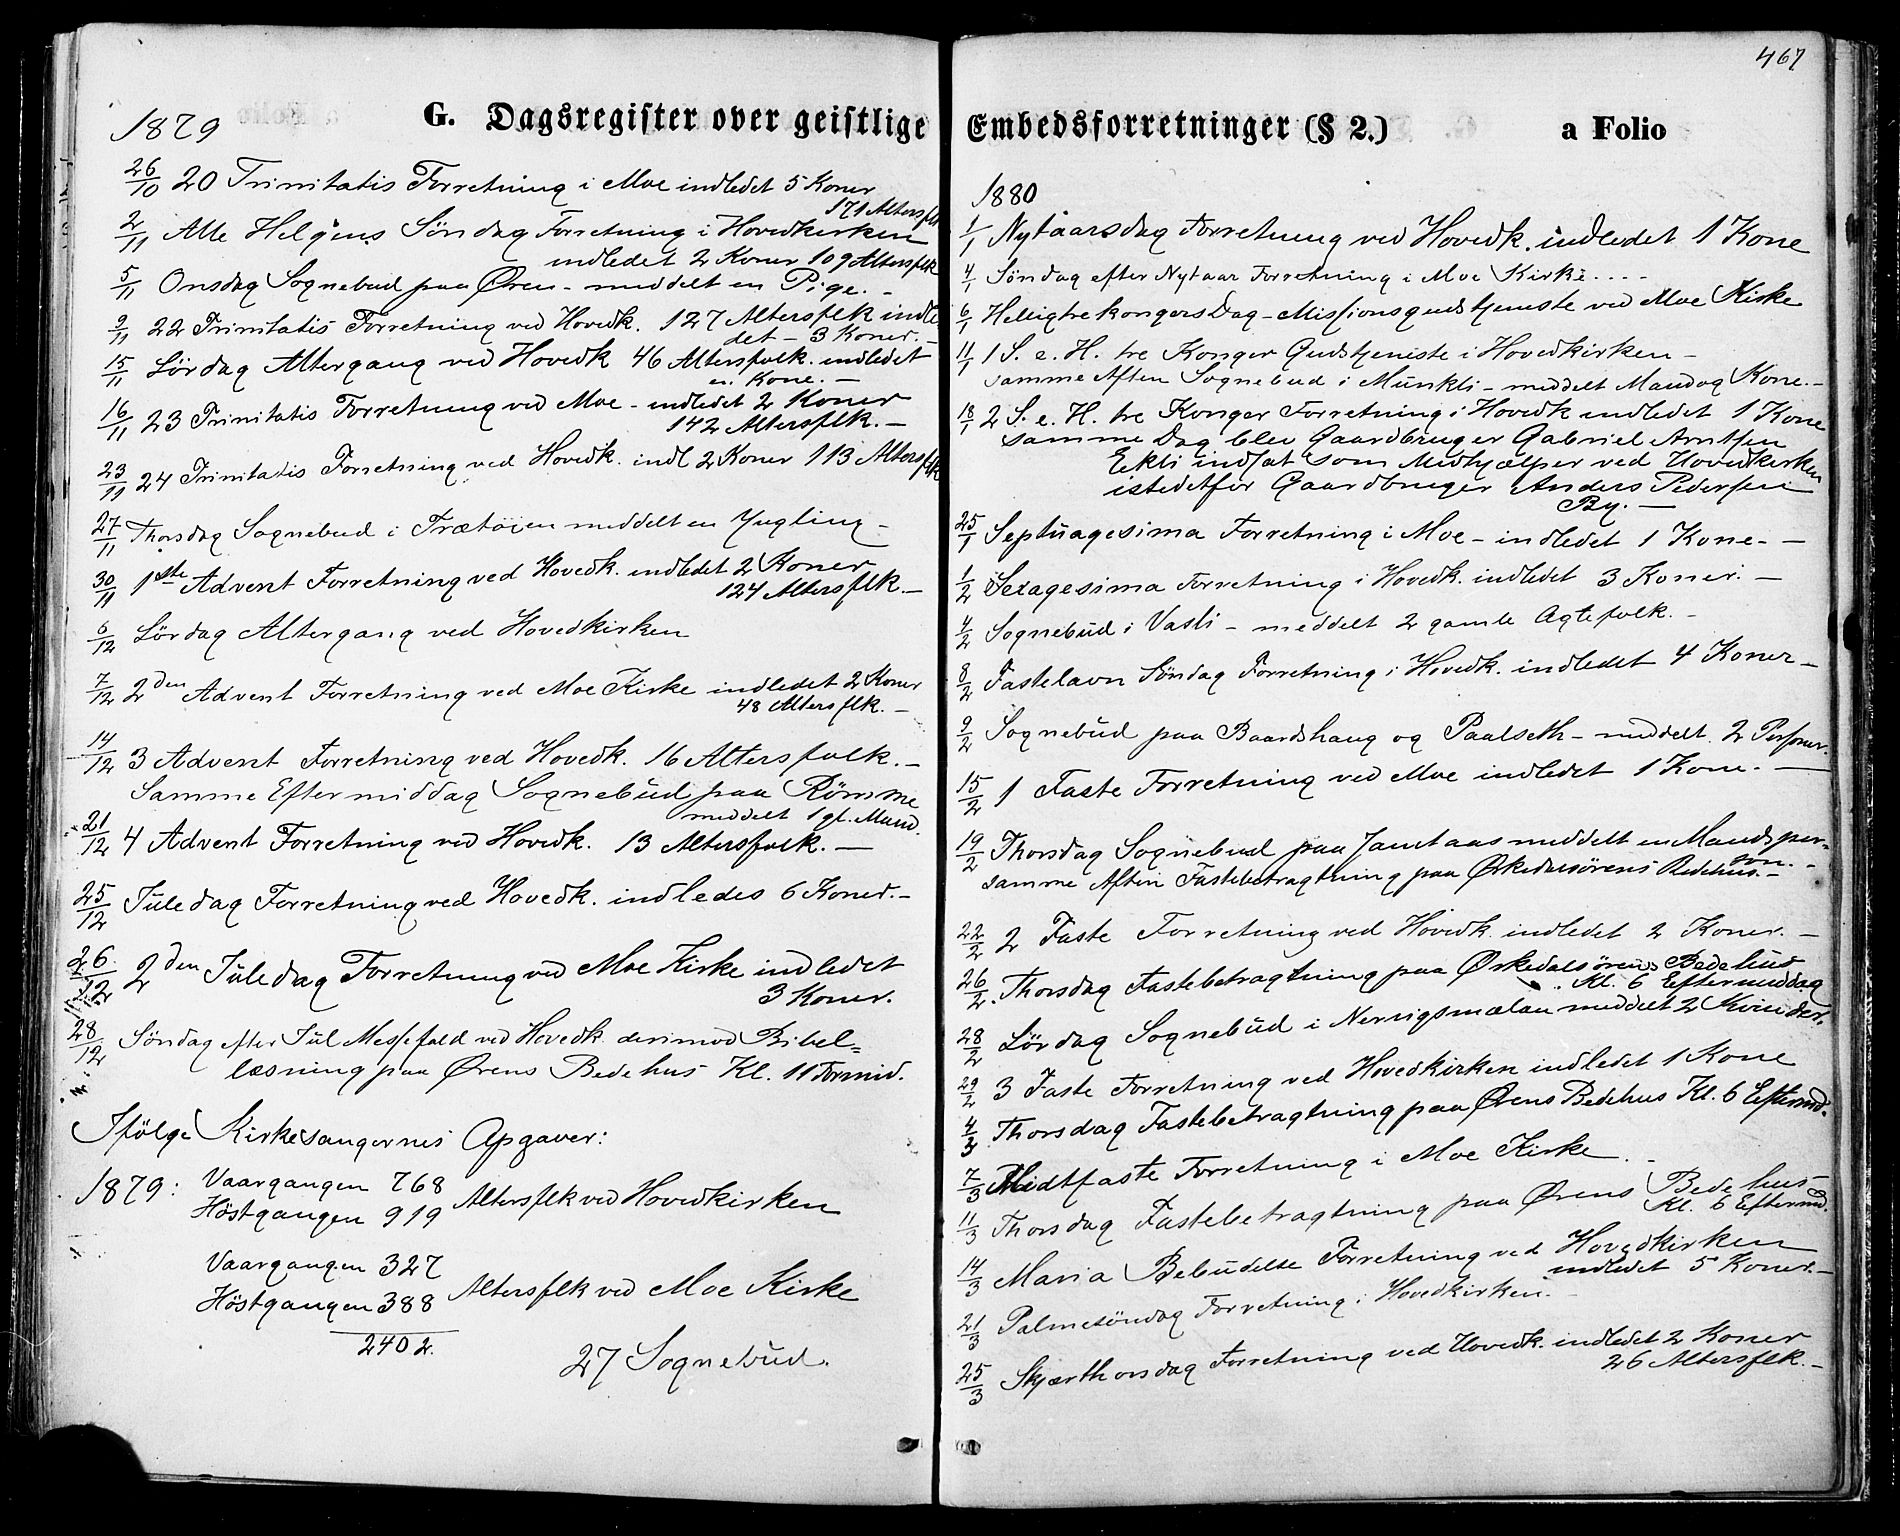 G. Dagsregister over geistlige
1879
26/10 20 Trinitatis Forretning i Moe indledet 5 Koner
171 Altersflk
2/11 Alle Helgens Söndag Forretning i Hovedkirken
indledet 2 Koner 109 Altersflk
5/11 Onsdag Sognebud paa Øren - meddelt en Pige. -
9/11 22 Trinitatis Forretning ved Hovedk. 127 Altersflk indle
det - 3 Koner. -
15/11 Lördag Altergang ved Hovedk 46 Altersfolk. indledet
en Kone. -
16/11 23 Trinitatis Forretning ved Moe - indledet 2 Koner
142 Altersflk. -
23/11 24 Trinitatis Forretning ved Hovedk. indl 2 Koner 113 Altersflk
27/11 Thorsdag Sognebud i Trætöien meddelt en Yngling -
30/11 1ste Advent Forretning ved Hovedk. indledet 2 Koner
124 Altersflk. -
6/12 Lördag Altergang ved Hovedkirken
7/12 2den Advent Forretning ved Moe Kirke indledet 2 Koner
48 Altersflk. -
14/12 3 Advent Forretning ved Hovedk. 16 Altersfolk. -
Samme Eftermiddag Sognebud paa Rømme
meddelt 1 gl. Mand.
21/12 4 Advent Forretning ved Hovedk. 13 Altersfolk. -
25/12 Juledag Forretning ved Hovedk. indledes 6 Koner. -
26/12 2den Juledag Forretning ved Moe Kirke indledet
3 Koner.
28/12 Söndag efter Jul Messefald ved Hovedk. derimod Bibel=
læsning paa Ørens Bedehus Kl. 11 Formid.
Ifölge Kirkesangernes Opgaver:
1879: Vaargangen 768
Höstgangen 919 Altersflk ved Hovedkirken
Vaargangen 327
Höstgangen 388 Altersflk ved Moe Kirke
2402.
27 Sognebud.
467
Embedsforretninger (§ 2.) a Folio
1880
1/1 Nytaarsdag Forretning ved Hovedk. indledet 1 Kone
4/1 Söndag efter Nytaar Forretning i Moe Kirke. . . .
6/1 Helligtrekongers Dag - Missionsgudstjeneste ved Moe Kirke
11/1 1 S. e. H. tre Konger Gudstjeneste i Hovedkirken -
samme Aften Sognebud i Munkli - meddelt Mand og Kone. -
18/1 2 S. e. H. tre Konger Forretning i Hovedk indledet 1 Kone
samme Dag blev Gaardbruger Gabriel Arntsen
Ekli indsat som Medhjælper ved Hovedkirken
istedetfor Gaardbruger Anders Pedersen
By. -
25/1 Septuagesima Forretning i Moe - indledet 1 Kone. -
1/2 Sexagesima Forretning i Hovedk. indledet 3 Koner. -
4/2 Sognebud i Vasli - meddelt 2 gamle Ægtefolk. -
8/2 Fastelavn Söndag Forretning i Hovedk. indledet 4 Koner -
9/2 Sognebud paa Baardshaug og Paalseth - meddelt 2 Personer.
15/2 1 Faste Forretning ved Moe indledet 1 Kone. -
19/2 Thorsdag Sognebud paa Jamtaas meddelt en Mandsper=
son. -
samme Aften Fastebetragtning paa Ørkedalsörens Bedehus. -
22/2 2 Faste Forretning ved Hovedk. indledet 2 Koner. -
26/2 Thorsdag Fastebetragtning paa Ørkedalsörens Bedehus
Kl. 6 Eftermiddag
28/2 Lördag Sognebud i Nervigsmælan meddelt 2 Kvinder.
29/2 3 Faste Forretning ved Hovedkirken indledet 1 Kone
4/3 Thorsdag Fastebetragtning paa Ørens Bedehus Kl. 6 Eftermd.
7/3 Midtfaste Forretning i Moe Kirke. -
11/3 Thorsdag Fastebetragtning paa Ørens Bedehus -
Kl. 6 Eftermd.
14/3 Maria Bebudelse Forretning ved Hovedkirken
indledet 5 Koner. -
21/3 Palmesöndag Forretning i Hovedkirken. -
25/3 Skjærthorsdag Forretning ved Hovedk. indledet 2 Koner
26 Altersflk. -